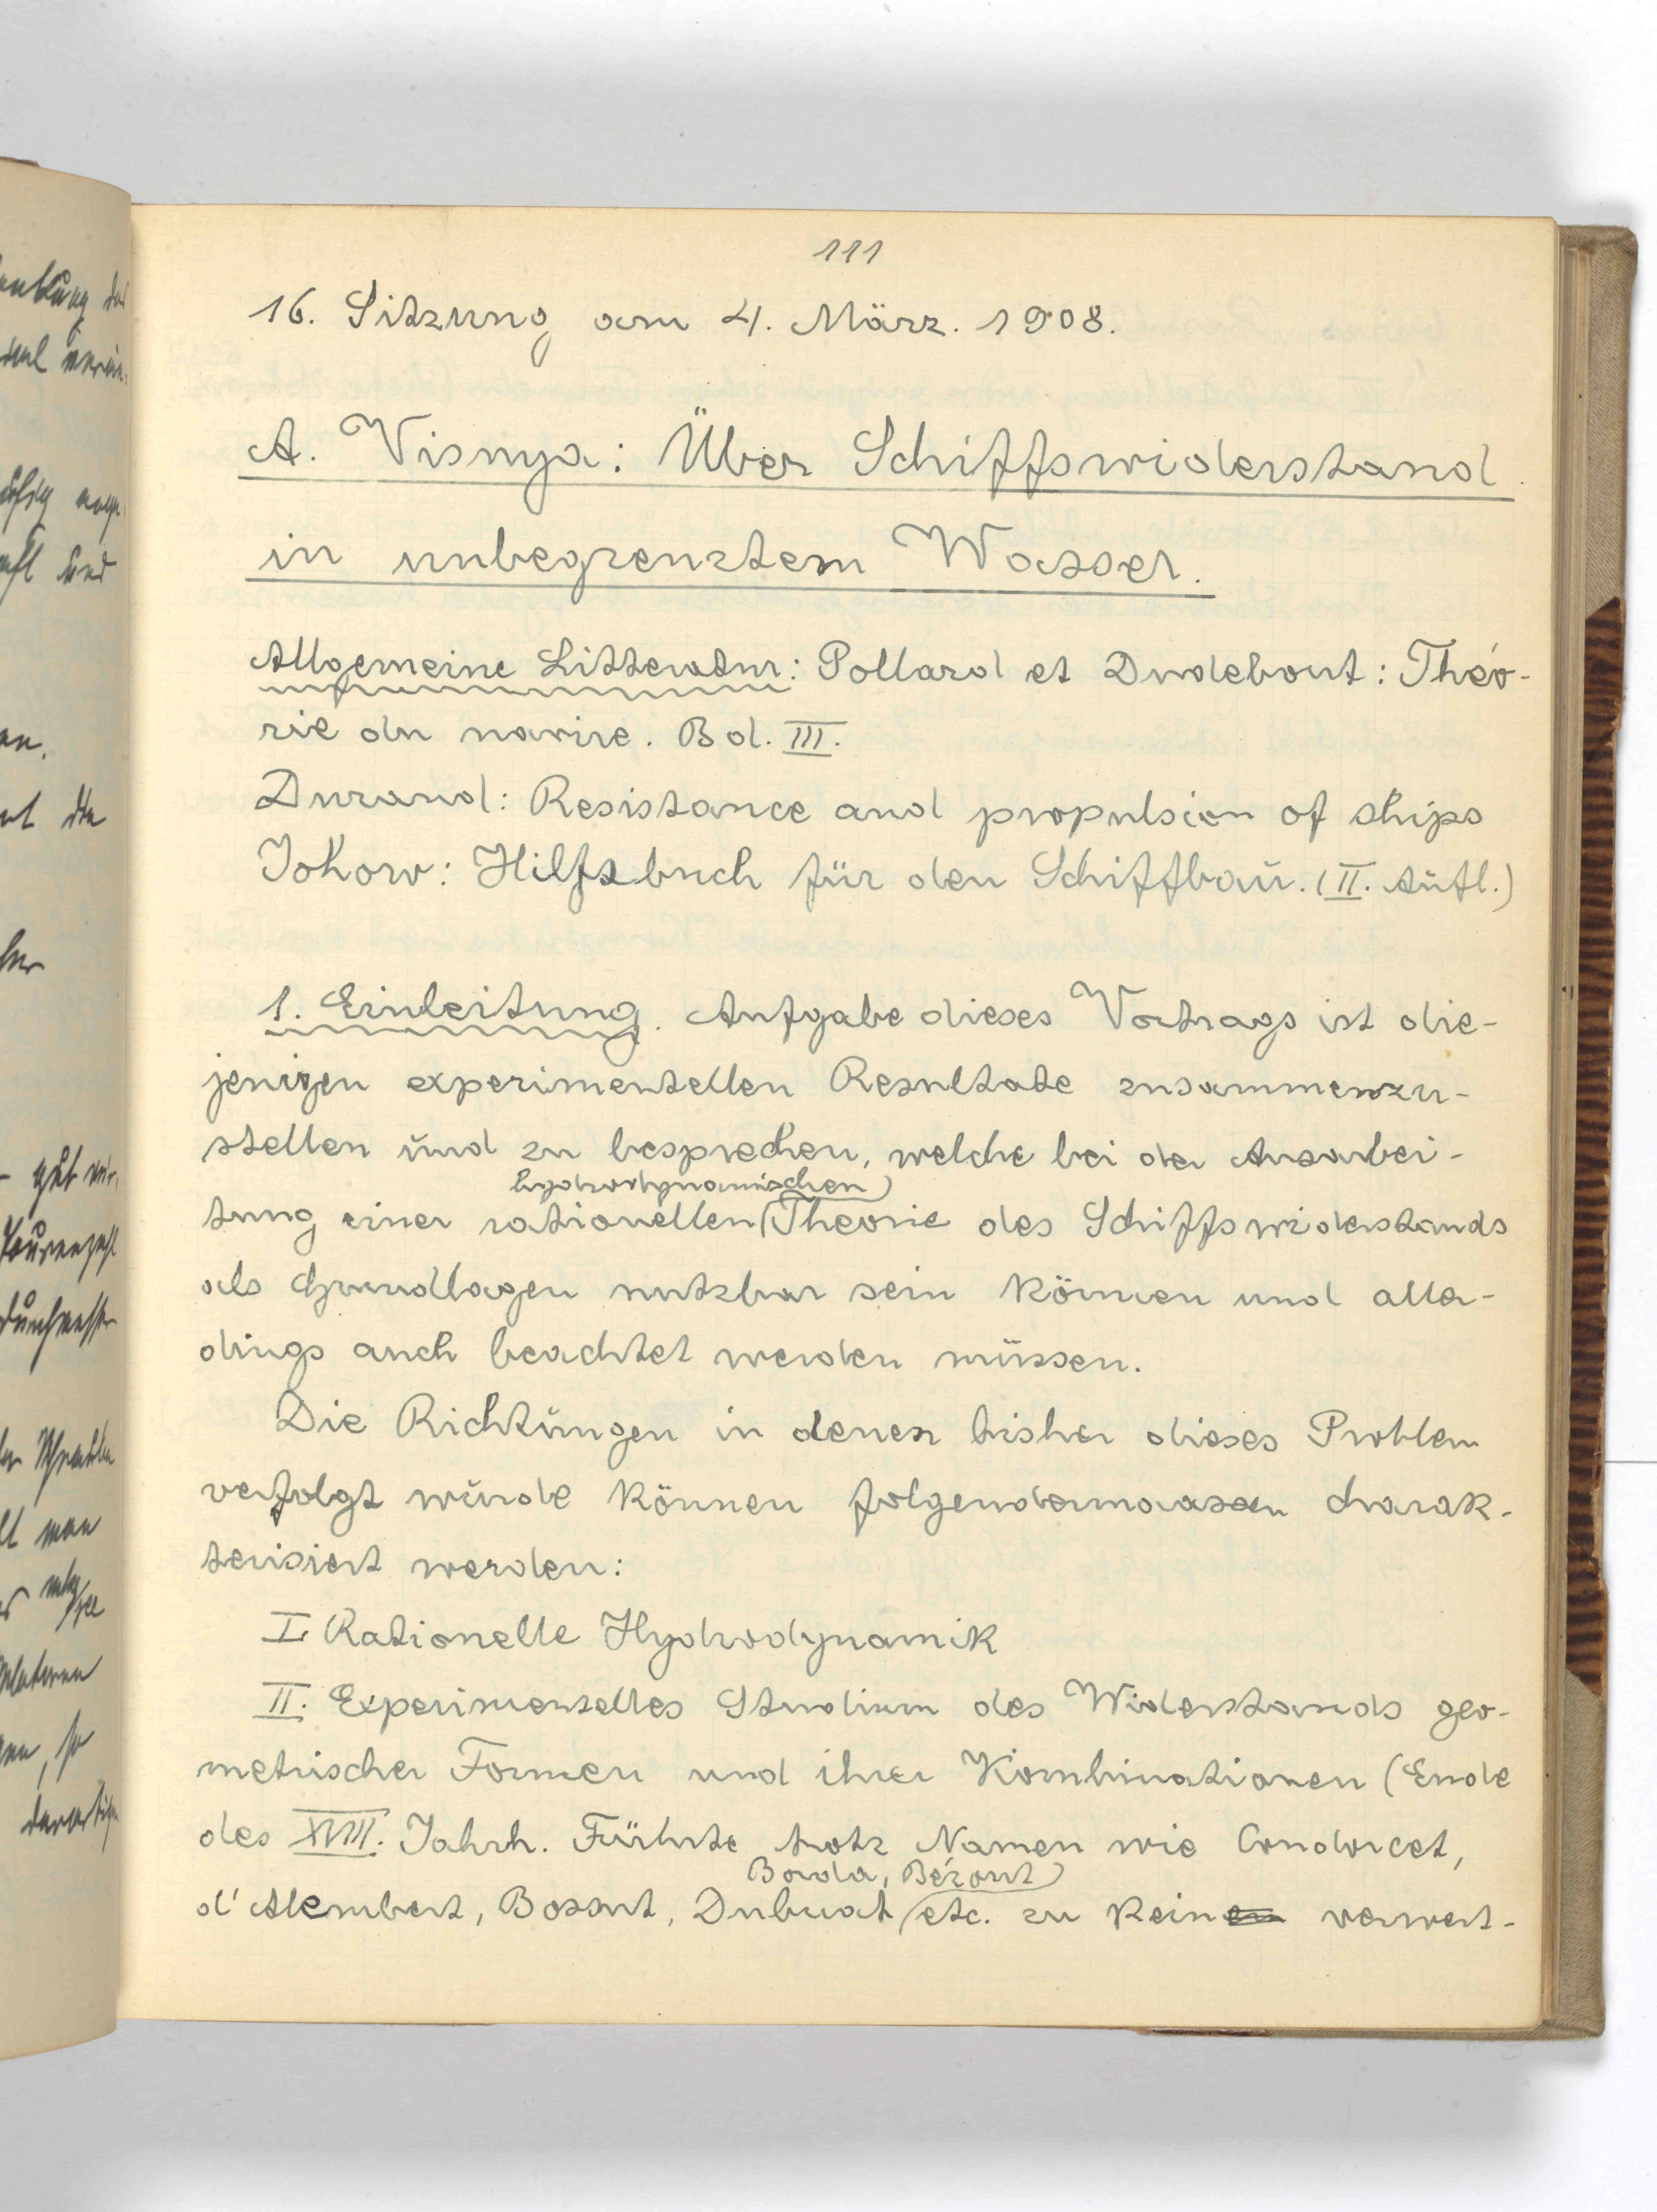 111
16. Sitzung am 4. März. 1908.
A. Visnya: Über Schiffswiderstand
in unbegrenztem Wasser.
Allgemeine Litteratur: Pollard et Dudebout: Théo-
rie du navire. Bd. III.
Durand: Resistance and propulsion of ships
Johow: Hilfsbuch für den Schiffbau. (II. Aufl.)
1. Einleitung. Aufgabe dieses Vortrags ist die-
jenigen experimentellen Resultate zusammenzu-
stellen und zu besprechen, welche bei der Ausarbei-
hydrodynamischen
tung einer rationellen Theorie des Schiffswiderstands
als Grundlagen nutzbar sein können und aller-
dings auch beachtet werden müssen.
Die Richtungen in denen bisher dieses Problem
verfolgt wurde können folgendermaassen charak-
terisiert werden:
I. Rationelle Hydrodynamik
II. Experimentelles Studium des Widerstands geo-
metrischer Formen und ihrer Kombinationen (Ende
des XVIII. Jahrh. Führte trotz Namen wie Condorcet,
Borda, Bézout
d'Alembert, Bossut, Dubuat etc. zu kein verwert-